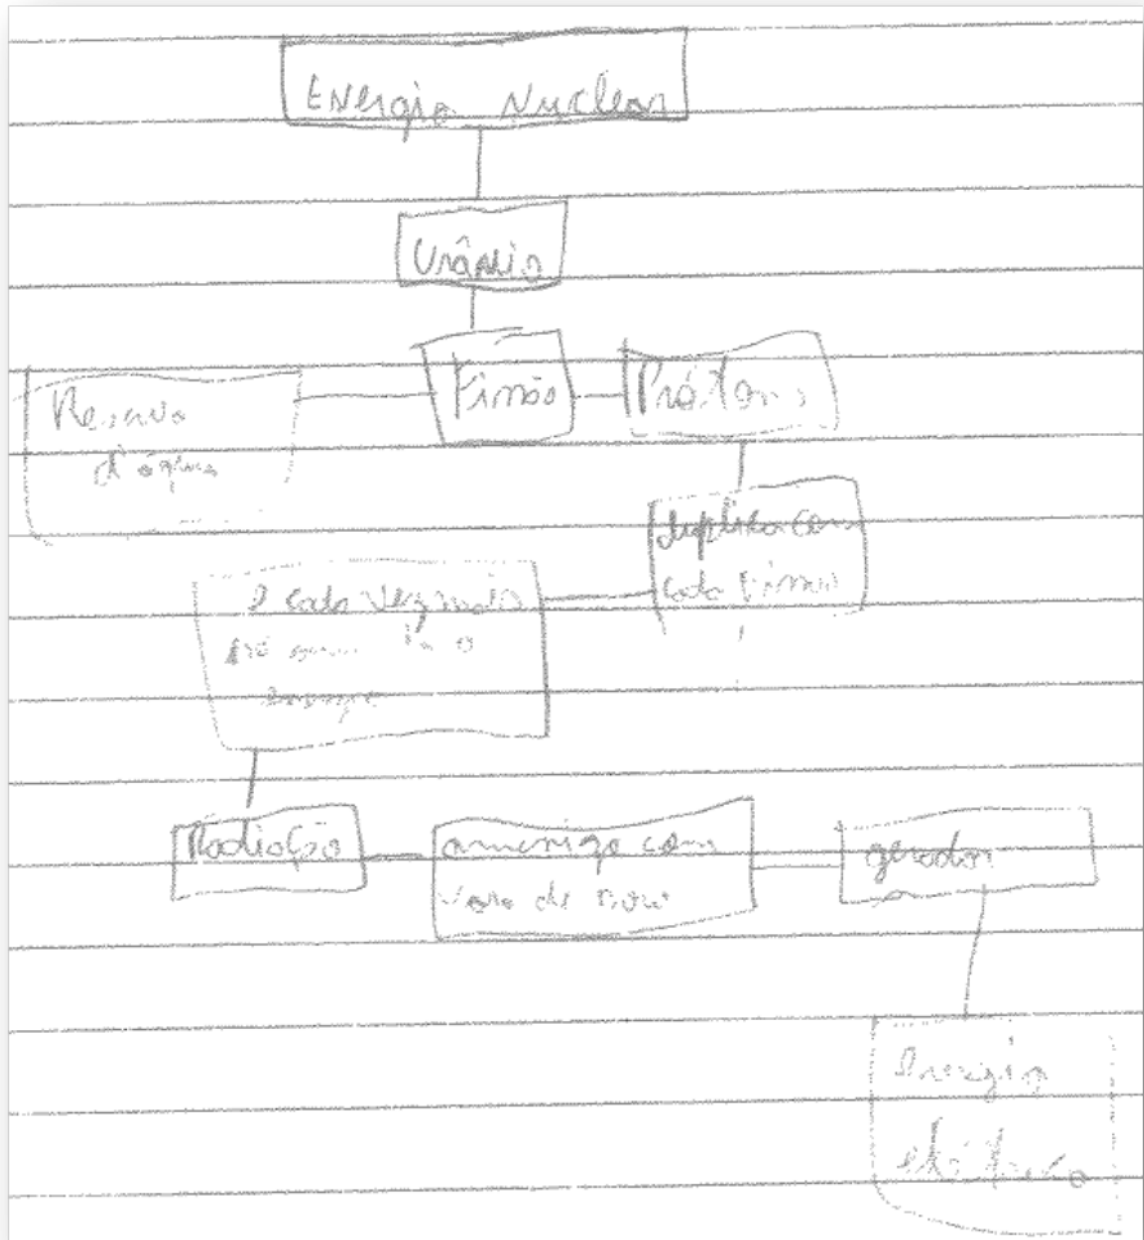 Energia Nuclear
Urânio
Reserva
d'água
Fissão
Prótons
duplica com
cada fissão
e cada vez mais
até
Radiação
ameniza com
gerador
Energia
elétrica